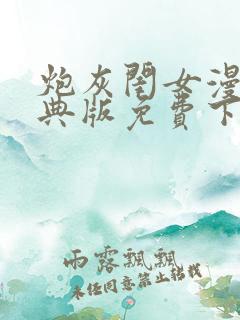 炮灰闺女漫
典版免费下
雨露飘飘
未经同意禁止转载